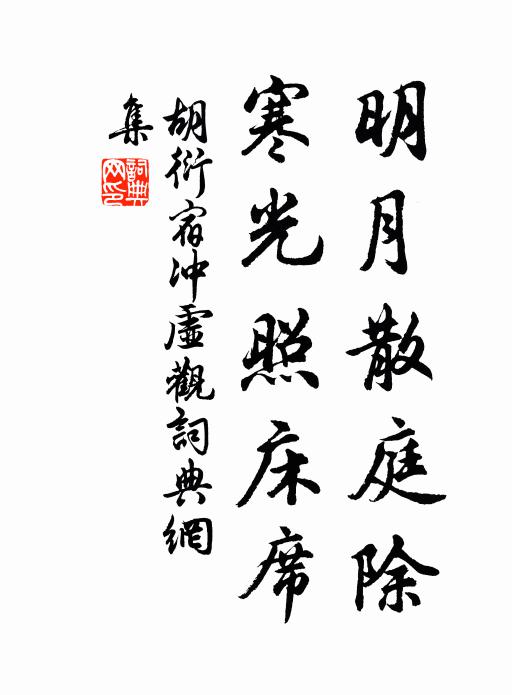 明月散庭除
寒光照床席
胡衍宿冲虛觀詞典網
集
詞典
网印